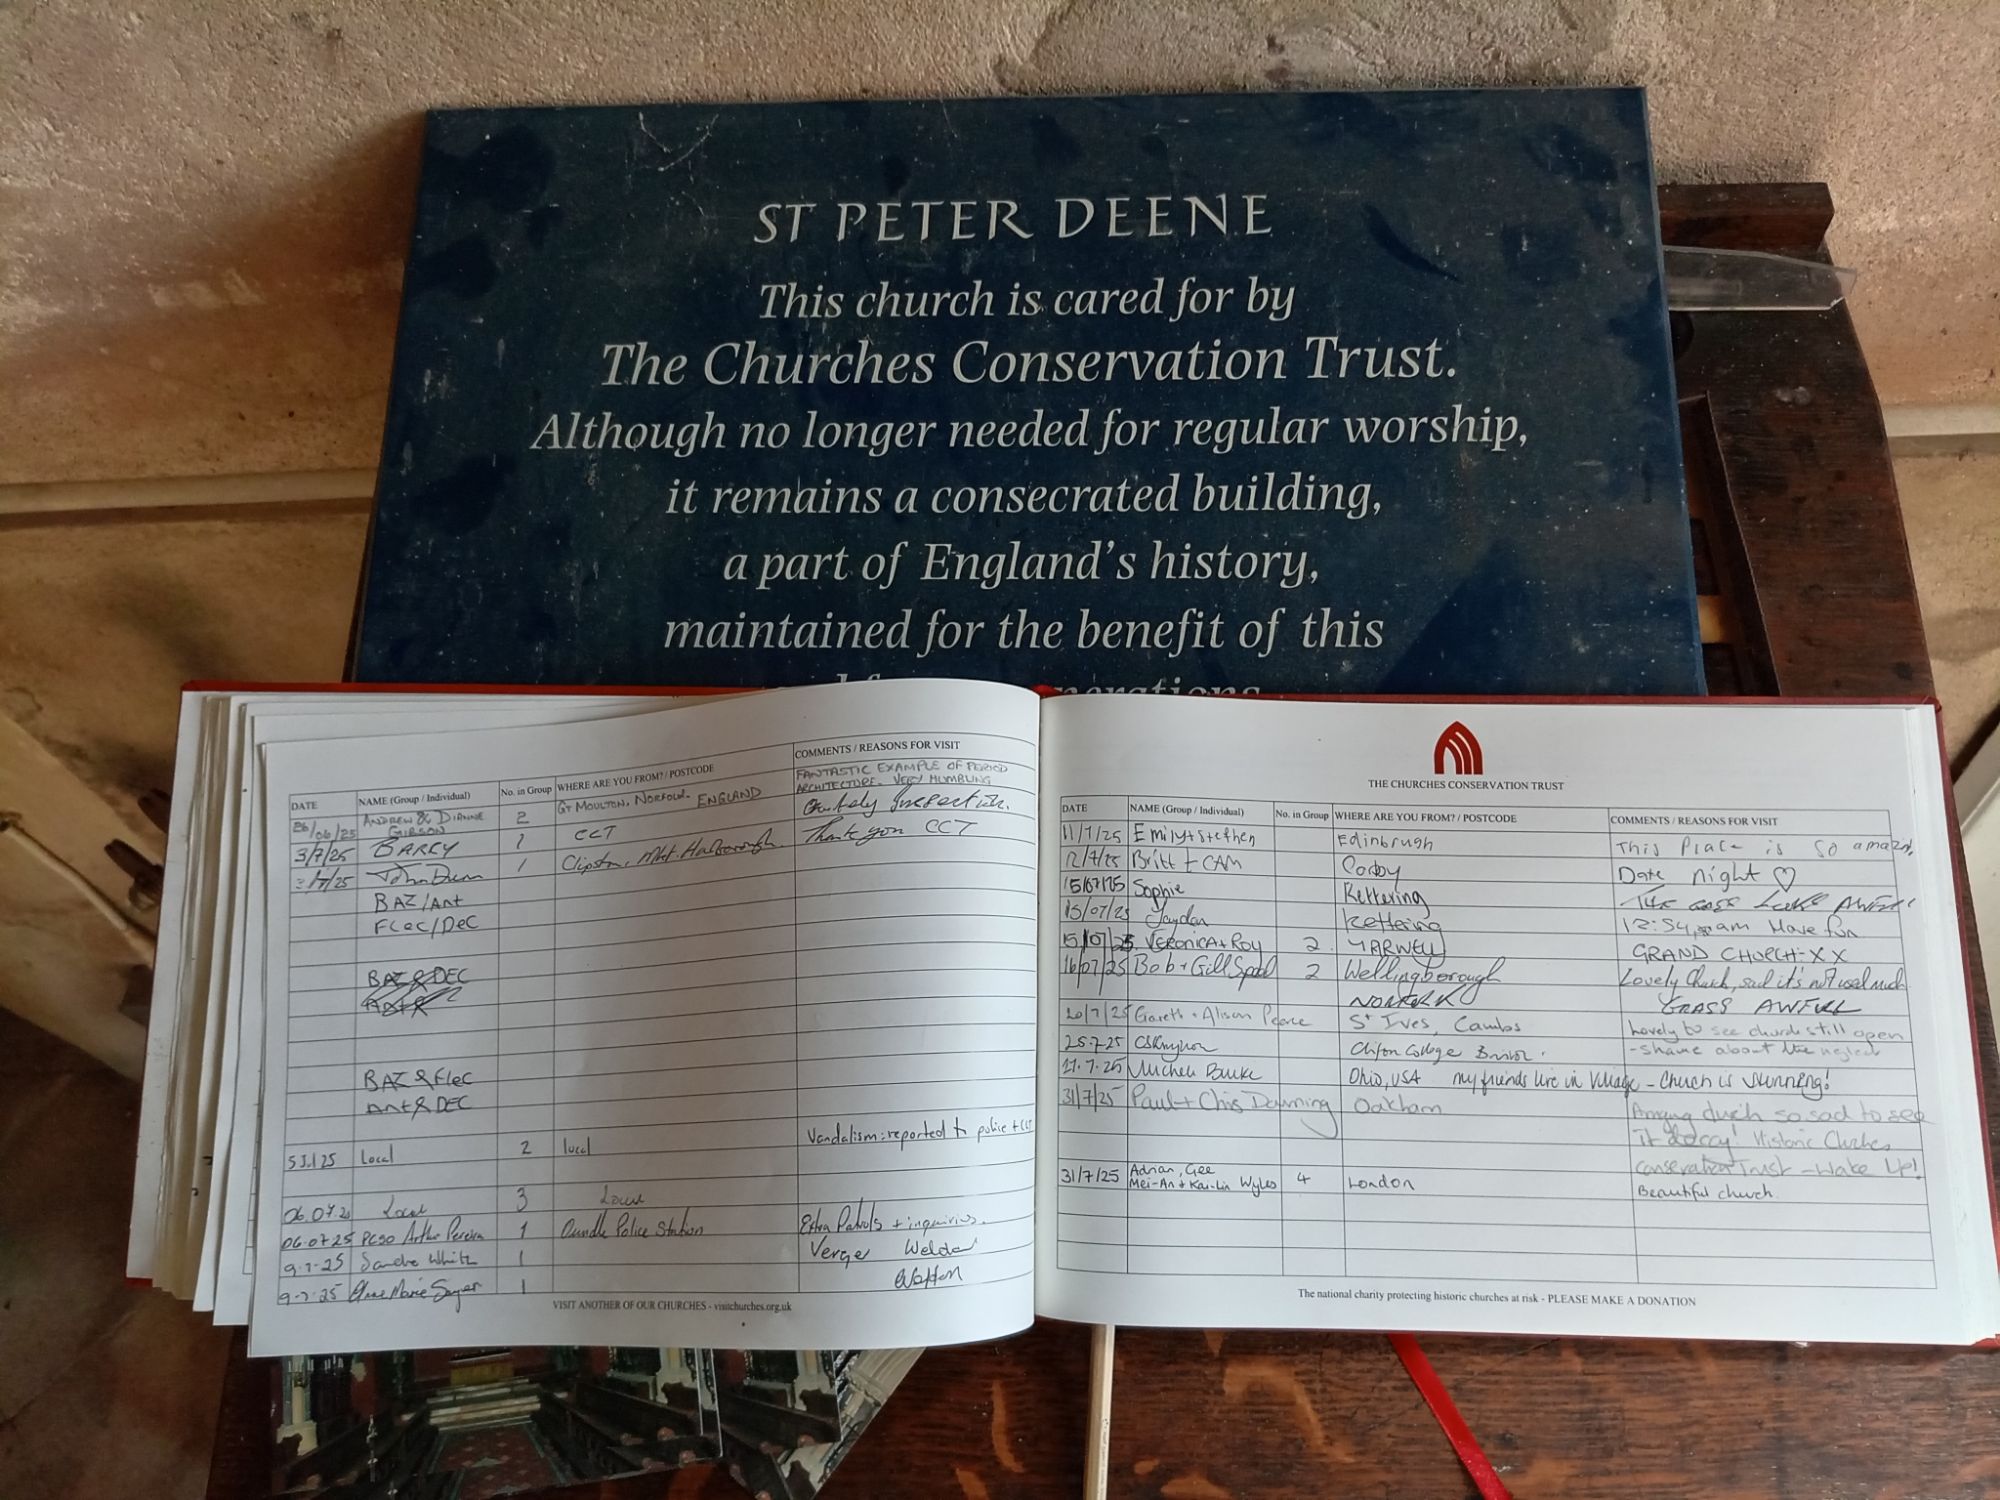 ST PETER DEENE
This church is cared for by
The Churches Conservation Trust.
Although no longer needed for regular worship,
it remains a consecrated building,
a part of England's history,
maintained for the benefit of this
COMMENTS / REASONS FOR VISIT
DATE NAME (Group / Individual) No. in Group WHERE ARE YOU FROM? / POSTCODE
FANTASTIC EXAMPLE OF PERIOD
ARCHITECTURE. VERY HUMBLING
26/06/25 ANDREW & DIANNE GIBSON 2 GT MOULTON, NORFOLK. ENGLAND
3/7/25 BARRY 1 CCT Quarterly Inspection.
/7/25 John 1 Clipston, Mkt. Harborough. Thank you CCT
BAZ/Ant
FLec/DeC
BAZ & DEC
BAZ & FLec
Ant & DEC
Vandalism: reported to police + CCT
5 25 Local 2 local
06.07.2 Local 3 Local
06.07.25 PCSO Arthur Pereira 1 Oundle Police Station Extra Patrols + inquiries.
9.7.25 Sandra White 1 Verger Weldon
9.7.25 Anne Marie 1
VISIT ANOTHER OF OUR CHURCHES - visitchurches.org.uk
THE CHURCHES CONSERVATION TRUST
DATE NAME (Group / Individual) No. in Group WHERE ARE YOU FROM? / POSTCODE COMMENTS / REASONS FOR VISIT
11/7/25 Emily + Stephen Edinbrugh This Place is so
12/7/25 Britt + CAM Corby Date night ♡
15/07/25 Sophie Kettering THE GRASS LOOKS AWFUL!
15/07/25 Jaydan Kettering 12:54, am Have fun
15/07/25. VERONICA + ROY 2. YARWELL GRAND CHURCH-XX
16/07/25 Bob + Gill 2 Wellingborough Lovely Church, sad it's not used much
NORFOLK GRASS AWFUL
20/7/25 Gareth + Alison Pearce St Ives, Cambs Lovely to see church still open
25.7.25 Clifton College Bristol. - shame about the neglect
27.7.25 Michele Burke Ohio, USA my friends live in Village - Church is stunning!
31/7/25 Paul + Chris Downing Oakham Amazing church so sad to see
it decay! Historic Churches
Conservation Trust - Wake Up!
31/7/25 Adrian, Gee 4 London Beautiful church.
Mei-An + Kai-Lin Wyles
The national charity protecting historic churches at risk - PLEASE MAKE A DONATION